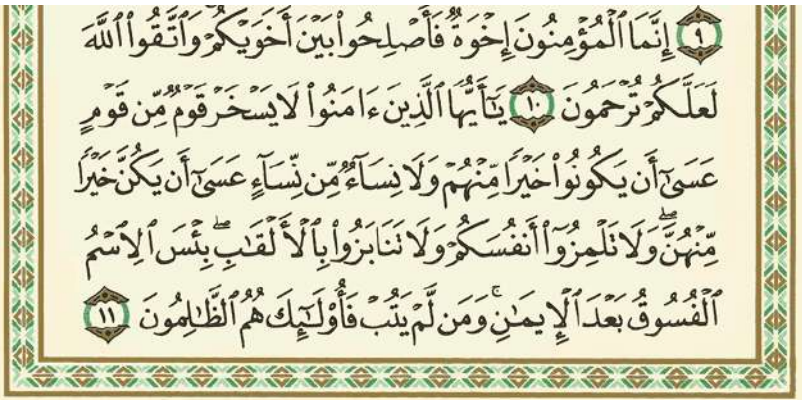 ۹ إِنَّمَا ٱلْمُؤْمِنُونَ إِخْوَةٌ فَأَصْلِحُوا۟ بَيْنَ أَخَوَيْكُمْ وَٱتَّقُوا۟ ٱللَّهَ
لَعَلَّكُمْ تُرْحَمُونَ ۱۰ يَـٰٓأَيُّهَا ٱلَّذِينَ ءَامَنُوا۟ لَا يَسْخَرْ قَوْمٌ مِّن قَوْمٍ
عَسَىٰٓ أَن يَكُونُوا۟ خَيْرًا مِّنْهُمْ وَلَا نِسَآءٌ مِّن نِّسَآءٍ عَسَىٰٓ أَن يَكُنَّ خَيْرًا
مِّنْهُنَّ ۖ وَلَا تَلْمِزُوٓا۟ أَنفُسَكُمْ وَلَا تَنَابَزُوا۟ بِٱلْأَلْقَـٰبِ ۖ بِئْسَ ٱلِٱسْمُ
ٱلْفُسُوقُ بَعْدَ ٱلْإِيمَـٰنِ ۚ وَمَن لَّمْ يَتُبْ فَأُو۟لَـٰٓئِكَ هُمُ ٱلظَّـٰلِمُونَ ۱۱